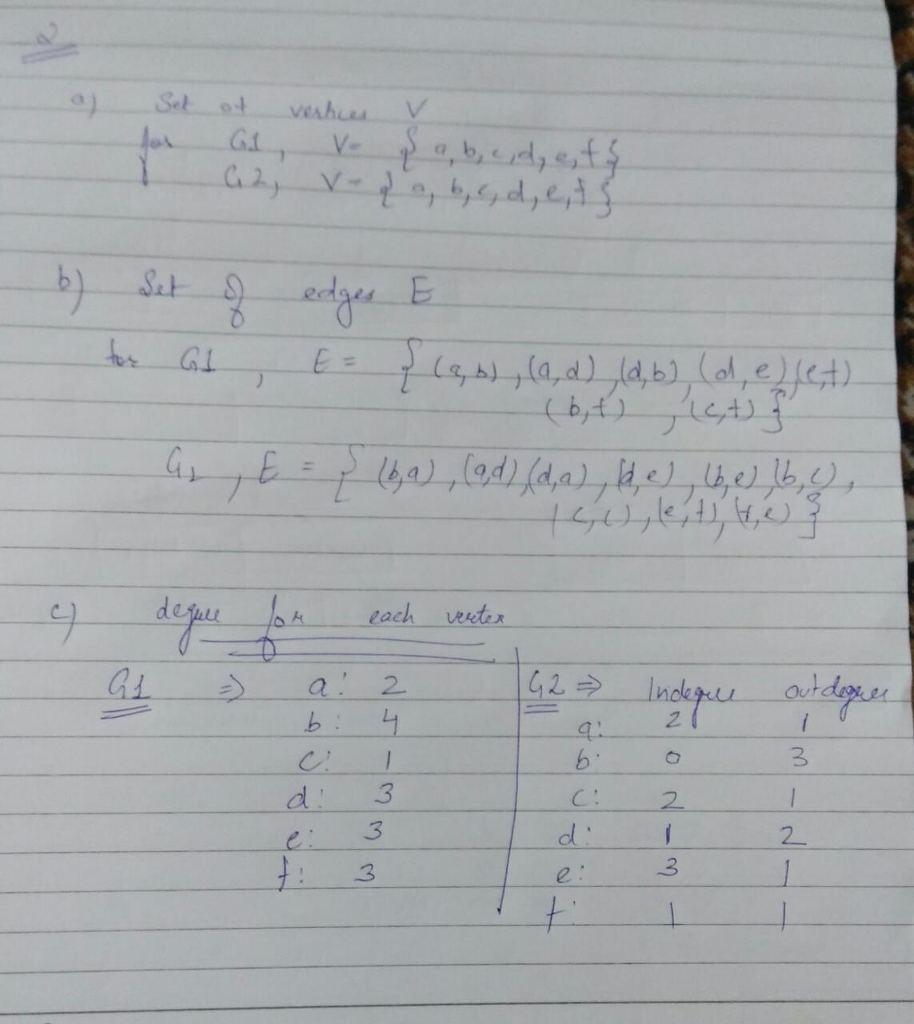 2
a) Set of vertices V
for G1, V= {a,b,c,d,e,f}
G2, V= {a,b,c,d,e,f}
b) Set of edges E
for G1, E= {(a,b),(a,d),(d,b),(d,e),(e,f)
(b,f),(c,f)}
G2, E = {(b,a),(a,d),(d,a),(d,e),(b,e),(b,c),
(c,c),(e,f),(f,e)}
c) degree for each vertex
G1 ⇒ a: 2
b: 4
c: 1
d: 3
e: 3
f: 3
G2 ⇒ Indegree outdegree
a: 2 1
b: 0 3
c: 2 1
d: 1 2
e: 3 1
f: 1 1